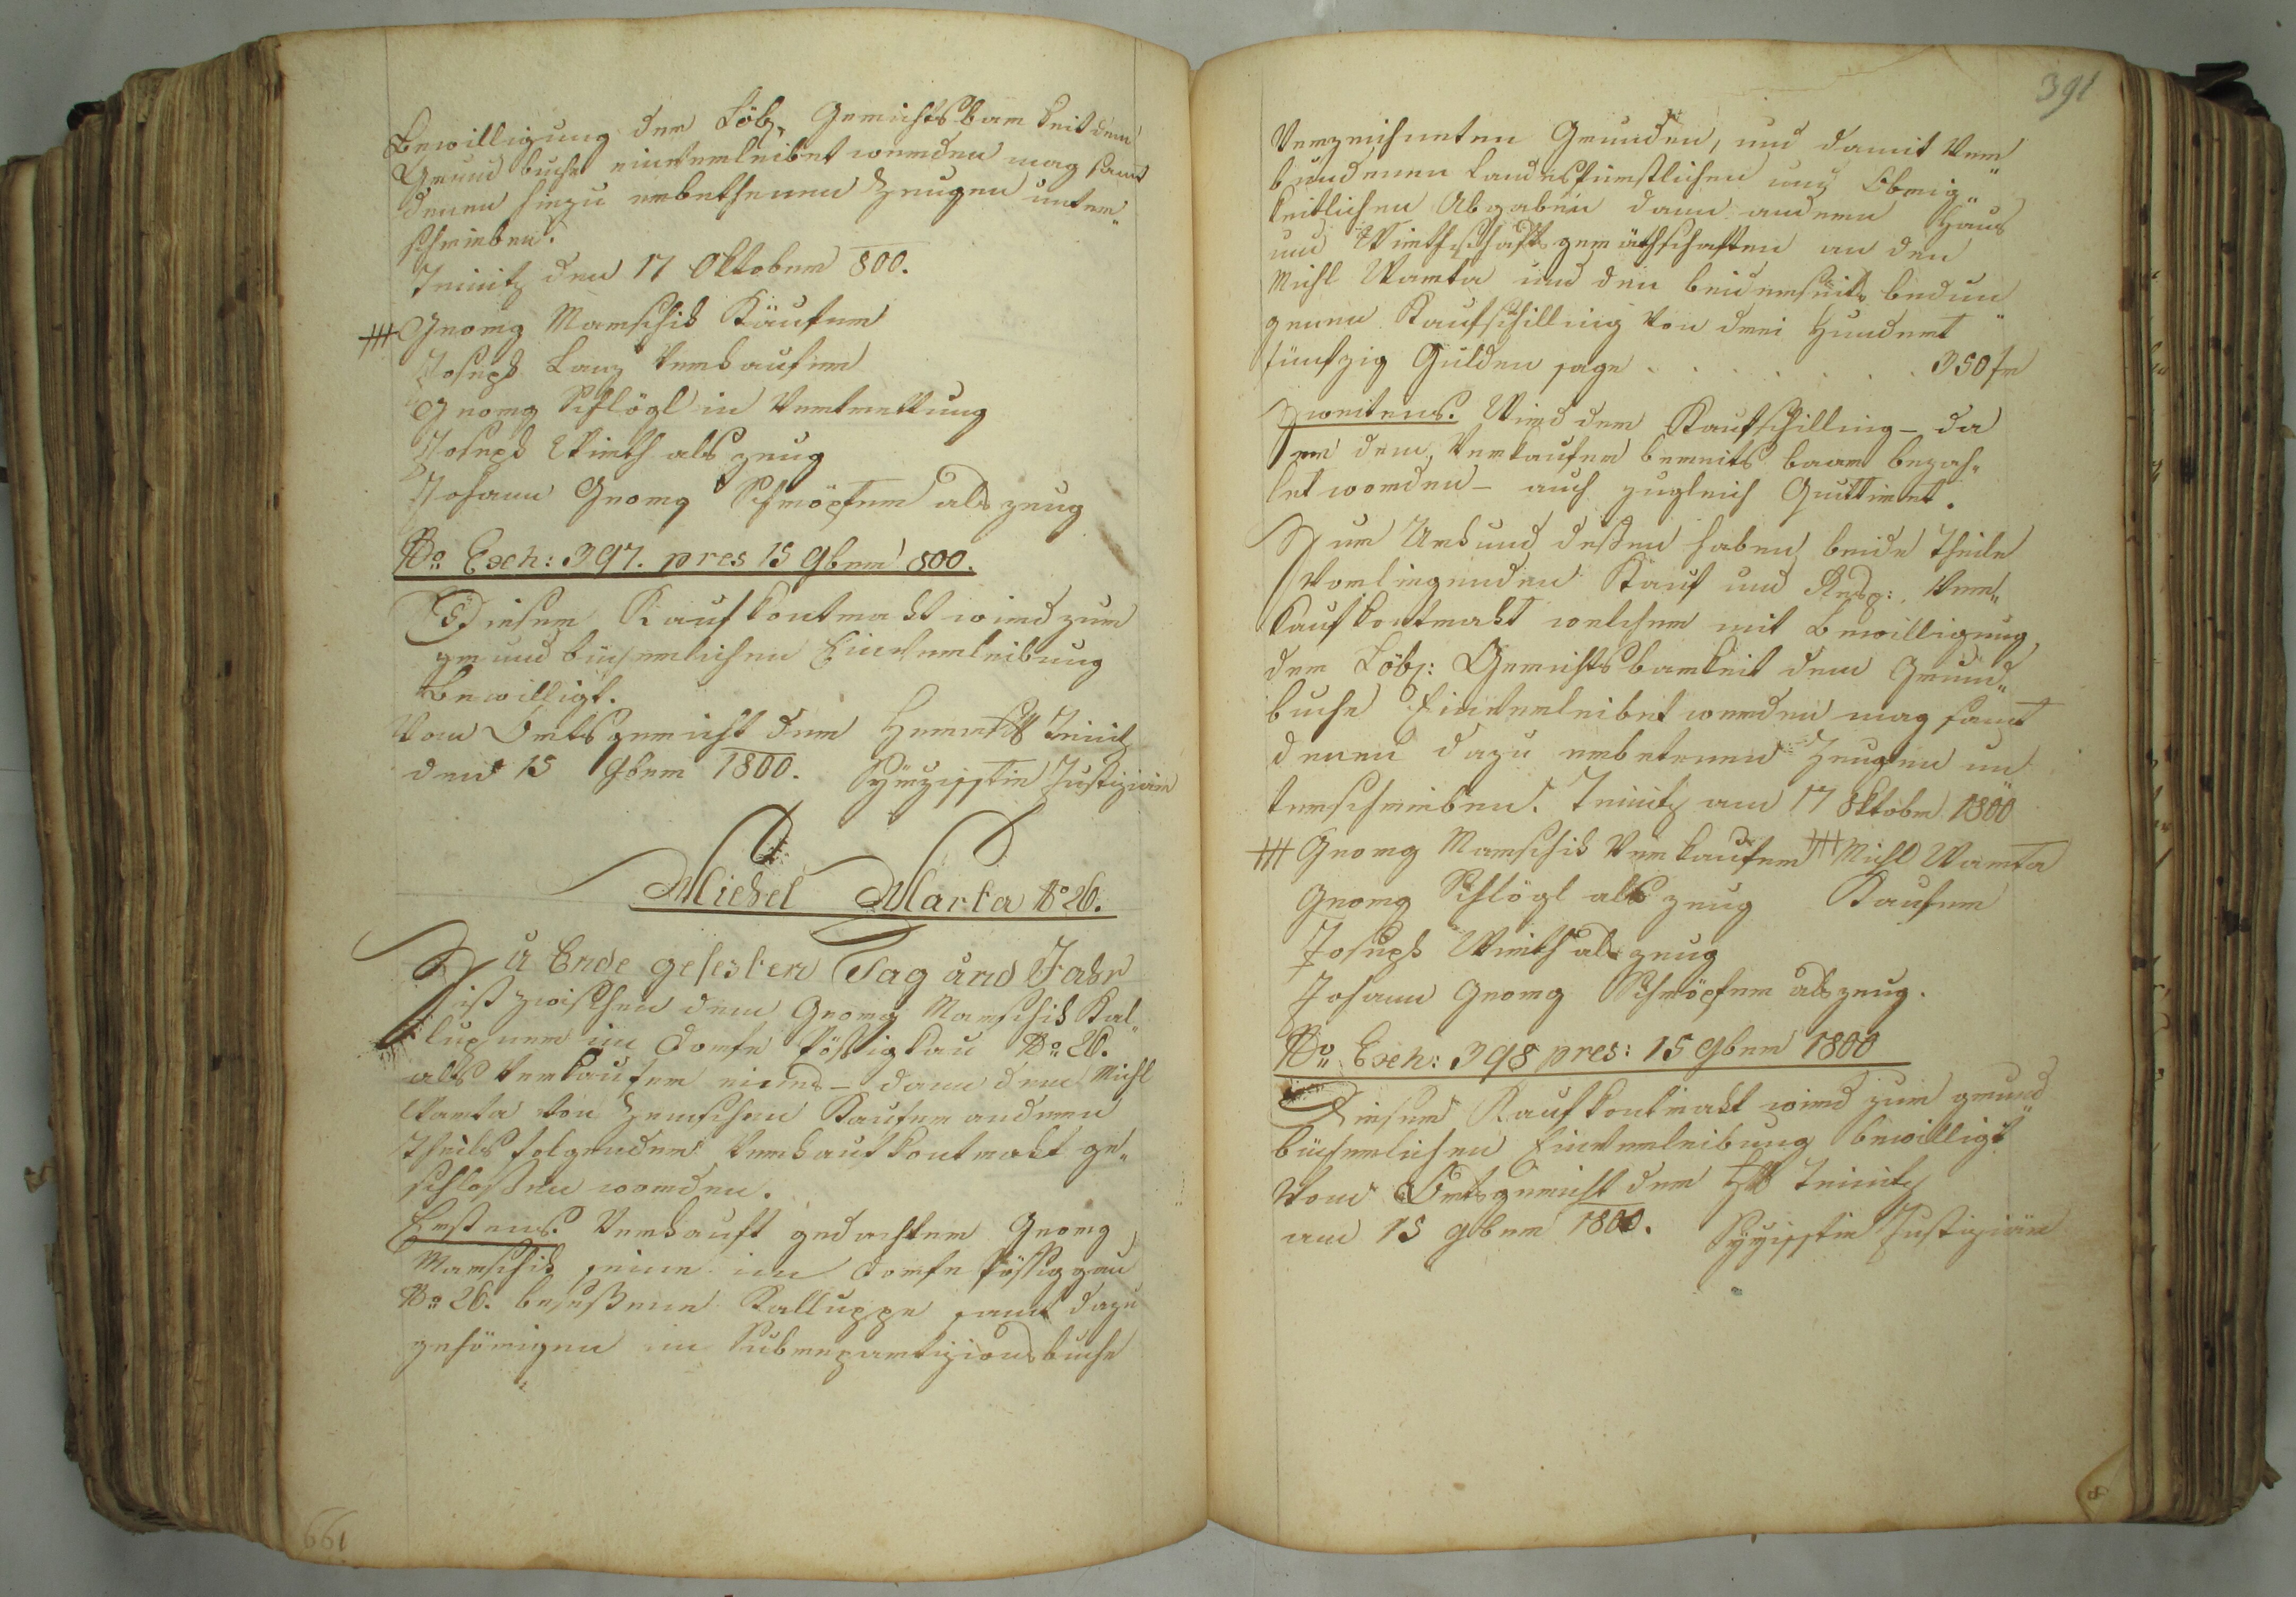 Bewilligung der Löb. Gerichtsbarkeit dem
Grundbuche einverleibet werden mag samt
denen hiezu erbethenen Zeugen unter„
schrieben.
Teinitz den 17 Oktober 800.
+++ Georg Marschik Käufer
Joseph Lang Verkaufer
Georg Schlögl in Vertrettung
Joseph Wirth als Zeug
Johann Georg Schröpfer als Zeug
No Exh: 397. pres 15 9ber 800.
Dieser Kaufkontrakt wird zur
grundbücherlichen Einverleibung
Bewilligt.
Vom Ortsgericht der Herrschft Teinitz
den 15 9ber 1800. Justiziär
Michel Marta No 26.
Zu Ende gesezten Tag und Jahr
ist zwischen dem Georg Marschik Kal„
lupner im Dorfe Pössigkau No 26.
als Verkaufer eines – dann dem Michl
Marta von Kaufer anderen
Theils folgender Verkaufkontrakt ge„
schlossen worden.
Erstens. Verkauft gedachter Georg
Marschik seine im Dorfe Pössiggau
No 26. besessene Kalluppe samt dazu
gehörigen im Subrepartizionsbuche
661
391
Verzeichneten Grunden, und damit Ver„
bundenen Landesfürstlichen und Obrig„
keitlichen Abgaben dann andern Haus
und Wirthschaftsgeräthschaften an den
Michl Marta um den beiderseits bedun„
genen Kaufschilling Von drei Hundert
fünfzig Gulden sage . . . . . . . 350 fr
Zweitens. Wird der Kaufschilling – da
er dem Verkaufer bereits baar bezah„
let worden – auch zugleich Quittiret.
Zur Urkund dessen haben beide Theile
Vorliegenden Kauf und Resp: Ver„
kaufkontrakt welcher mit Bewilligung
der Löbl: Gerichtsbarkeit dem Grund„
buche Einverleibet werden mag samt
denen dazu erbetenen Zeugen un„
terschrieben. Teinitz am 17 Oktober 1800
+++ Georg Marschik Verkaufer +++ Michl Marta
Georg Schlögl als Zeug Kaufer
Joseph Wirth als Zeug
Johann Georg Schröpfer als Zeug.
No Exh: 398 pres: 15 9ber 1800
Dieser Kaufkontrakt wird zur grund„
bücherlichen Einverleibung bewilligt
Vom Ortsgericht der Hft Teinitz
am 15 9ber 1800. Justiziär